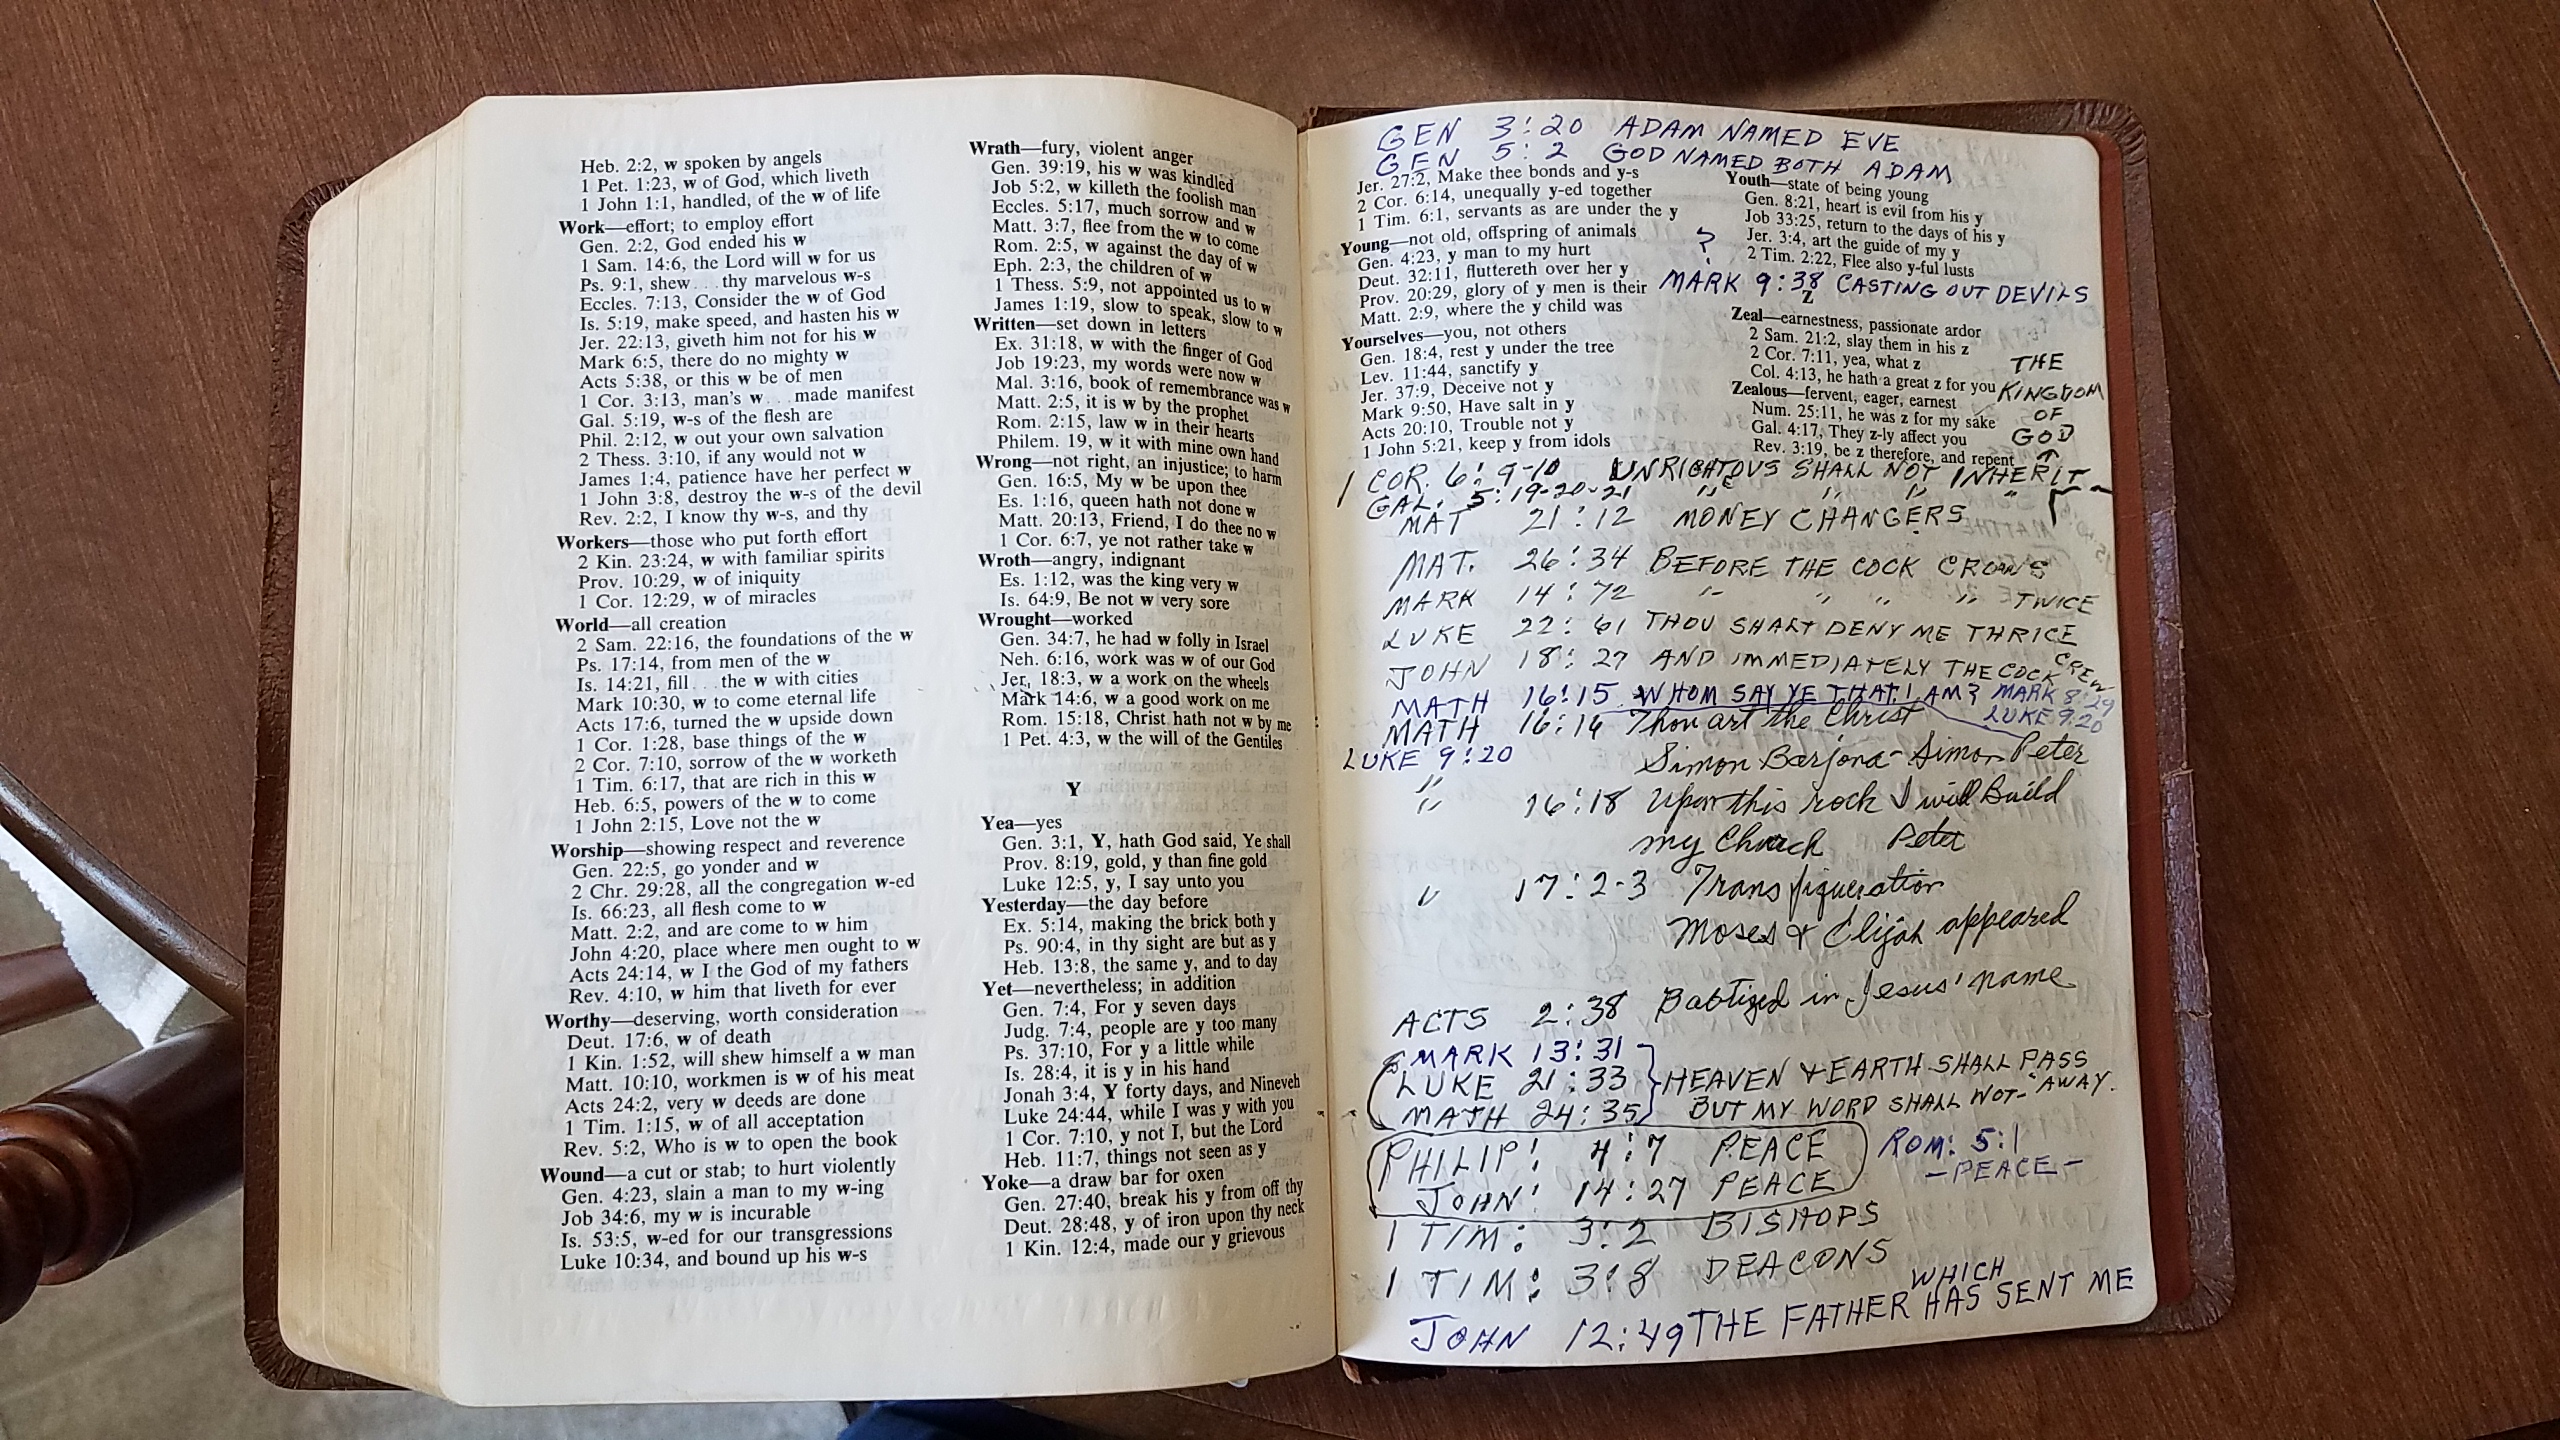 Heb. 2:2, w spoken by angels
1 Pet. 1:23, w of God, which liveth
1 John 1:1, handled, of the w of life
Work—effort; to employ effort
Gen. 2:2, God ended his w
1 Sam. 14:6, the Lord will w for us
Ps. 9:1, shew . . . thy marvelous w-s
Eccles. 7:13, Consider the w of God
Is. 5:19, make speed, and hasten his w
Jer. 22:13, giveth him not for his w
Mark 6:5, there do no mighty w
Acts 5:38, or this w be of men
1 Cor. 3:13, man's w . . . made manifest
Gal. 5:19, w-s of the flesh are
Phil. 2:12, w out your own salvation
2 Thess. 3:10, if any would not w
James 1:4, patience have her perfect w
1 John 3:8, destroy the w-s of the devil
Rev. 2:2, I know thy w-s, and thy
Workers—those who put forth effort
2 Kin. 23:24, w with familiar spirits
Prov. 10:29, w of iniquity
1 Cor. 12:29, w of miracles
World—all creation
2 Sam. 22:16, the foundations of the w
Ps. 17:14, from men of the w
Is. 14:21, fill . . . the w with cities
Mark 10:30, w to come eternal life
Acts 17:6, turned the w upside down
1 Cor. 1:28, base things of the w
2 Cor. 7:10, sorrow of the w worketh
1 Tim. 6:17, that are rich in this w
Heb. 6:5, powers of the w to come
1 John 2:15, Love not the w
Worship—showing respect and reverence
Gen. 22:5, go yonder and w
2 Chr. 29:28, all the congregation w-ed
Is. 66:23, all flesh come to w
Matt. 2:2, and are come to w him
John 4:20, place where men ought to w
Acts 24:14, w I the God of my fathers
Rev. 4:10, w him that liveth for ever
Worthy—deserving, worth consideration
Deut. 17:6, w of death
1 Kin. 1:52, will shew himself a w man
Matt. 10:10, workmen is w of his meat
Acts 24:2, very w deeds are done
1 Tim. 1:15, w of all acceptation
Rev. 5:2, Who is w to open the book
Wound—a cut or stab; to hurt violently
Gen. 4:23, slain a man to my w-ing
Job 34:6, my w is incurable
Is. 53:5, w-ed for our transgressions
Luke 10:34, and bound up his w-s
Wrath—fury, violent anger
Gen. 39:19, his w was kindled
Job 5:2, w killeth the foolish man
Eccles. 5:17, much sorrow and w
Matt. 3:7, flee from the w to come
Rom. 2:5, w against the day of w
Eph. 2:3, the children of w
1 Thess. 5:9, not appointed us to w
James 1:19, slow to speak, slow to w
Written—set down in letters
Ex. 31:18, w with the finger of God
Job 19:23, my words were now w
Mal. 3:16, book of remembrance was w
Matt. 2:5, it is w by the prophet
Rom. 2:15, law w in their hearts
Philem. 19, w it with mine own hand
Wrong—not right, an injustice; to harm
Gen. 16:5, My w be upon thee
Es. 1:16, queen hath not done w
Matt. 20:13, Friend, I do thee no w
1 Cor. 6:7, ye not rather take w
Wroth—angry, indignant
Es. 1:12, was the king very w
Is. 64:9, Be not w very sore
Wrought—worked
Gen. 34:7, he had w folly in Israel
Neh. 6:16, work was w of our God
Jer. 18:3, w a work on the wheels
Mark 14:6, w a good work on me
Rom. 15:18, Christ hath not w by me
1 Pet. 4:3, w the will of the Gentiles
Y
Yea—yes
Gen. 3:1, Y, hath God said, Ye shall
Prov. 8:19, gold, y than fine gold
Luke 12:5, y, I say unto you
Yesterday—the day before
Ex. 5:14, making the brick both y
Ps. 90:4, in thy sight are but as y
Heb. 13:8, the same y, and to day
Yet—nevertheless; in addition
Gen. 7:4, For y seven days
Judg. 7:4, people are y too many
Ps. 37:10, For y a little while
Is. 28:4, it is y in his hand
Jonah 3:4, Y forty days, and Nineveh
Luke 24:44, while I was y with you
1 Cor. 7:10, y not I, but the Lord
Heb. 11:7, things not seen as y
Yoke—a draw bar for oxen
Gen. 27:40, break his y from off thy
Deut. 28:48, y of iron upon thy neck
1 Kin. 12:4, made our y grievous
GEN 3:20 ADAM NAMED EVE
GEN 5:2 GOD NAMED BOTH ADAM
Jer. 27:2, Make thee bonds and y-s
2 Cor. 6:14, unequally y-ed together
1 Tim. 6:1, servants as are under the y
Young—not old, offspring of animals
Gen. 4:23, y man to my hurt
Deut. 32:11, fluttereth over her y
Prov. 20:29, glory of y men is their
Matt. 2:9, where the y child was
Yourselves—you, not others
Gen. 18:4, rest y under the tree
Lev. 11:44, sanctify y
Jer. 37:9, Deceive not y
Mark 9:50, Have salt in y
Acts 20:10, Trouble not y
1 John 5:21, keep y from idols
Youth—state of being young
Gen. 8:21, heart is evil from his y
Job 33:25, return to the days of his y
Jer. 3:4, art the guide of my y
2 Tim. 2:22, Flee also y-ful lusts
?
MARK 9:38 CASTING OUT DEVILS
Z
Zeal—earnestness, passionate ardor
2 Sam. 21:2, slay them in his z
2 Cor. 7:11, yea, what z
Col. 4:13, he hath a great z for you
Zealous—fervent, eager, earnest
Num. 25:11, he was z for my sake
Gal. 4:17, They z-ly affect you
Rev. 3:19, be z therefore, and repent
THE
KINGDOM
OF
GOD
1 COR. 6:9-10 UNRIGHTOUS SHALL NOT INHERIT
GAL. 5:19-20-21 " " " "
MAT 21:12 MONEY CHANGERS
MAT. 26:34 BEFORE THE COCK CROWS
MARK 14:72 " " " " TWICE
LUKE 22:61 THOU SHALT DENY ME THRICE
JOHN 18:27 AND IMMEDIATELY THE COCK CREW
MATH 16:15 WHOM SAY YE THAT I AM? MARK 8:29
LUKE 9:20
MATH 16:16 Thou art the Christ
LUKE 9:20 Simon Barjona - Simon Peter
" 16:18 Upon this rock I will Build
my Church Peter
" 17:2-3 Transfigueration
Moses & Elijah appeared
ACTS 2:38 Babtized in Jesus' name
MARK 13:31
LUKE 21:33 HEAVEN & EARTH SHALL PASS AWAY.
MATH 24:35 BUT MY WORD SHALL NOT - "
PHILIP: 4:7 PEACE ROM: 5:1
JOHN: 14:27 PEACE - PEACE -
1 TIM: 3:2 BISHOPS
1 TIM: 3:8 DEACONS
JOHN 12:49 THE FATHER WHICH HAS SENT ME